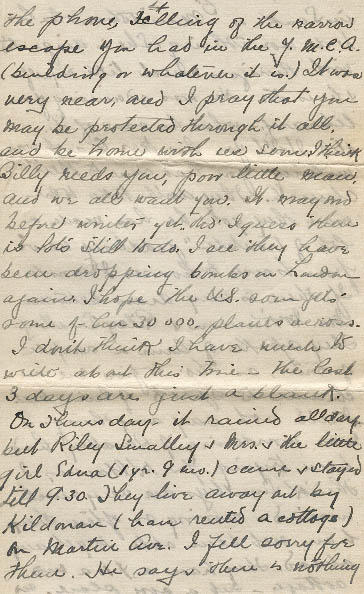 the phone, telling of the narrow
escape you had in the Y.M.C.A.
(building or whatever it is.) It was
very near, and I pray that you
may be protected through it all,
and be home with us soon, I think
Billy needs you, poor little man,
and we all want you. It may end
before winter yet, tho' I guess there
is lots still to do. I see they have
been dropping bombs on London
again. I hope the U.S. soon gets
some of her 30 000, planes across.
I don't think I have much to
write about this time – the last
3 days are just a blank.
On Thursday it rained all day
but Riley Smalley & Mrs. & the little
girl Edna (1 yr. 9 mo.) came & stayed
till 9.30. They live away out by
Kildonan (have rented a cottage)
on Martin Ave. I fell sorry for
them. He says there is nothing